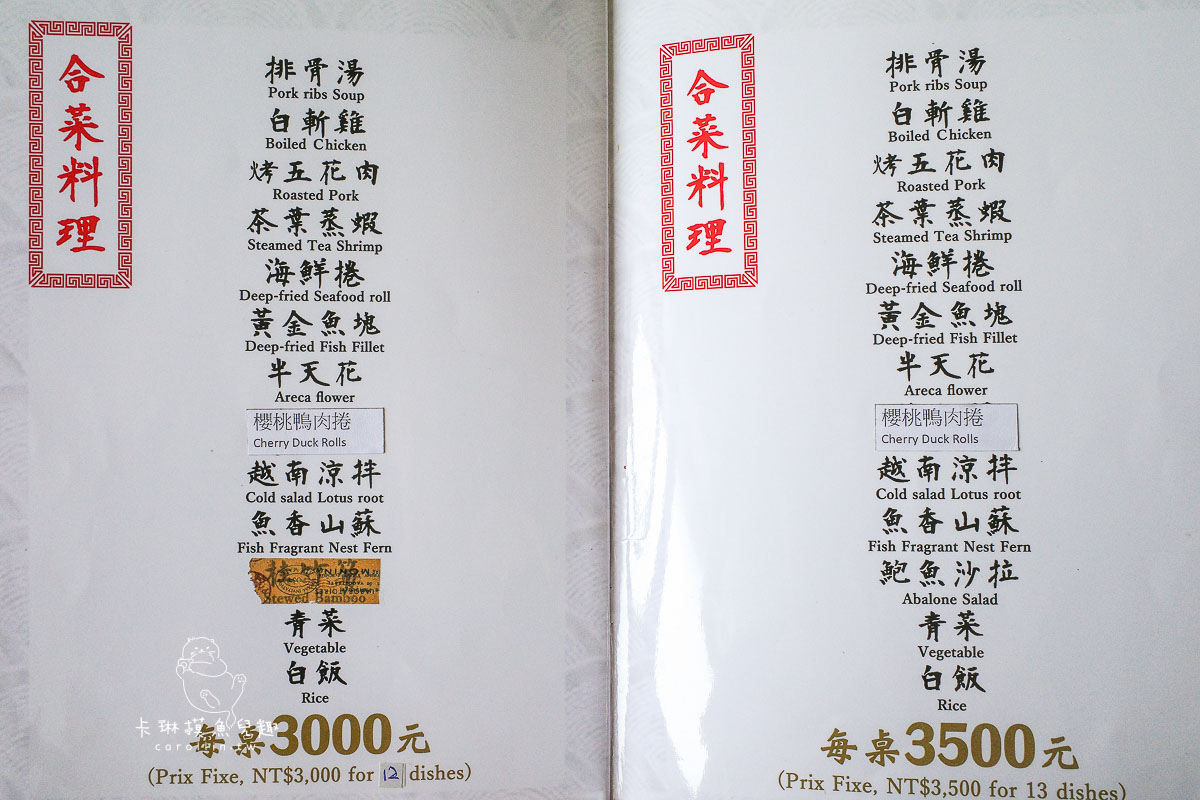 合菜料理
排骨湯
Pork ribs Soup
白斬雞
Boiled Chicken
烤五花肉
Roasted Pork
茶葉蒸蝦
Steamed Tea Shrimp
海鮮捲
Deep-fried Seafood roll
黃金魚塊
Deep-fried Fish Fillet
半天花
Areca flower
櫻桃鴨肉捲
Cherry Duck Rolls
越南涼拌
Cold salad Lotus root
魚香山蘇
Fish Fragrant Nest Fern
桂竹筍
Stewed Bamboo
青菜
Vegetable
白飯
Rice
每桌3000元
(Prix Fixe, NT$3,000 for 12 dishes)
卡琳摸魚兒趣
合菜料理
排骨湯
Pork ribs Soup
白斬雞
Boiled Chicken
烤五花肉
Roasted Pork
茶葉蒸蝦
Steamed Tea Shrimp
海鮮捲
Deep-fried Seafood roll
黃金魚塊
Deep-fried Fish Fillet
半天花
Areca flower
櫻桃鴨肉捲
Cherry Duck Rolls
越南涼拌
Cold salad Lotus root
魚香山蘇
Fish Fragrant Nest Fern
鮑魚沙拉
Abalone Salad
青菜
Vegetable
白飯
Rice
每桌3500元
(Prix Fixe, NT$3,500 for 13 dishes)